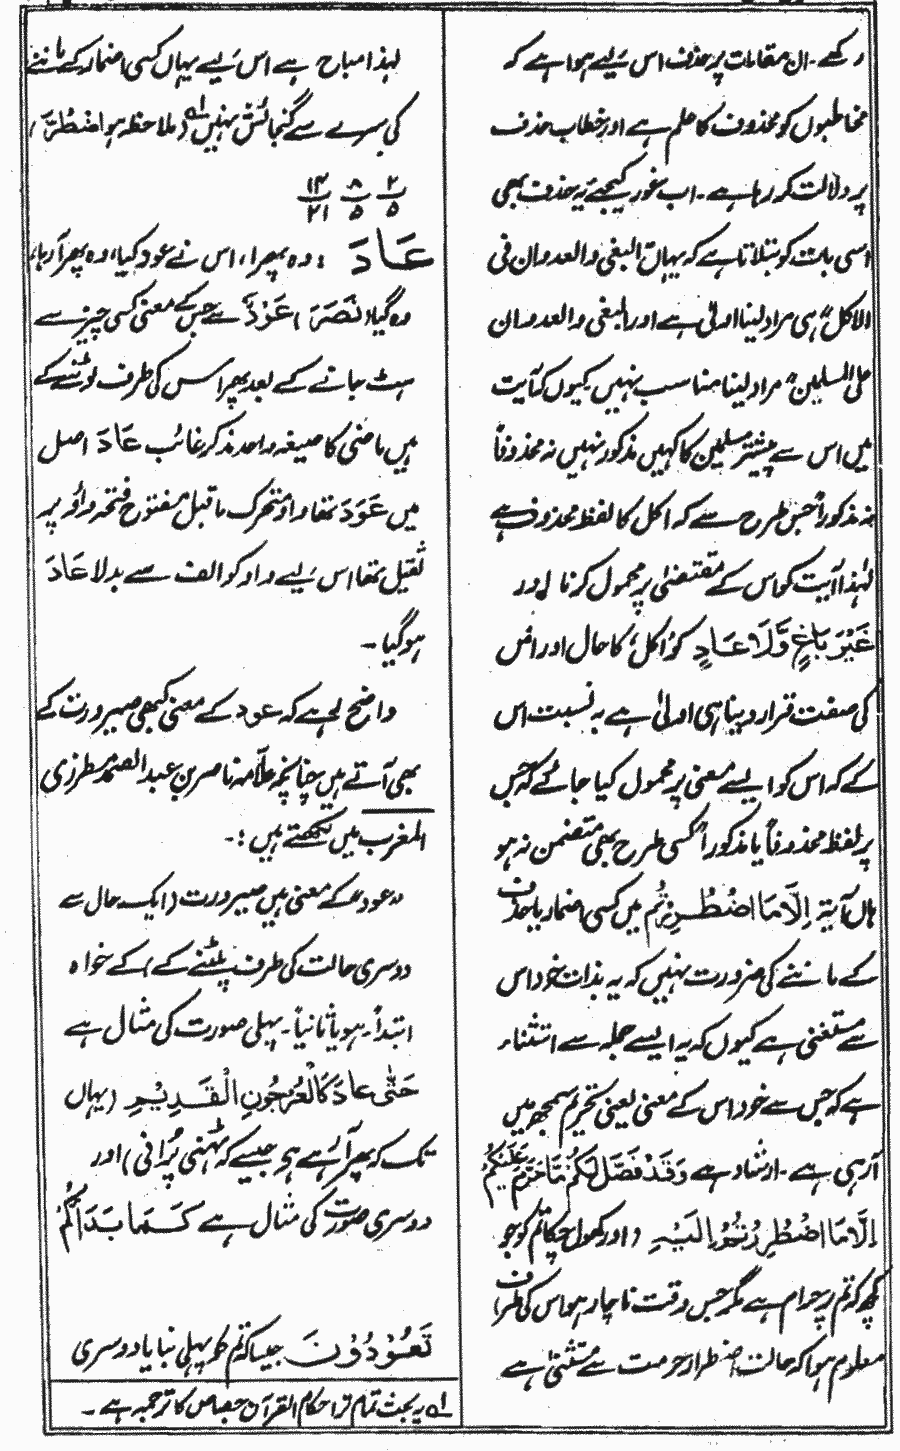 رکھے۔ ان مقامات پر حذف اس لیے ہوا ہے کہ
مخاطبوں کو محذوف کا علم ہے اور خطاب حذف
پر دلالت کر رہا ہے۔ اب غور کیجئے زیر حذف بھی
اسی بات کو بتلاتا ہے کہ یہاں البغی والعدوان فی
الاکل ہی مراد لینا اولیٰ ہے اور البغی والعدوان
علی المسلمین مراد لینا مناسب نہیں کیوں کہ آیت
میں اس سے پیشتر مسلمین کا کہیں مذکور نہیں نہ محذوفاً
نہ مذکوراً جس طرح سے کہ اکل کا لفظ محذوف ہے
لہٰذا آیت کو اس کے مقتضیٰ پر محمول کرنا اور
غَيْرَ بَاغٍ وَّلَا عَادٍ کو اکل کا حال اور اس
کی صفت قرار دینا ہی اولیٰ ہے بہ نسبت اس
کے کہ اس کو ایسے معنی پر محمول کیا جائے کہ جس
پر لفظ محذوفاً یا مذکوراً کسی طرح بھی متضمن نہ ہو
ہاں آیۃ اِلَّا مَا اضْطُرِرْتُمْ میں کسی اضمار یا حذف
کے ماننے کی ضرورت نہیں کہ یہ بذات خود اس
سے مستغنی ہے کیوں کہ یہ ایسے جملہ سے استثناء
ہے کہ جس سے خود اس کے معنی یعنی تحریم سمجھ میں
آ رہی ہے۔ ارشاد ہے وَقَدْ فَصَّلَ لَكُمْ مَّا حَرَّمَ عَلَيْكُمْ
اِلَّا مَا اضْطُرِرْتُمْ اِلَيْهِ (اور کھول چکا تم کو جو
کچھ کہ تم پر حرام ہے مگر جس وقت ناچار ہو اس کی طرف)
معلوم ہوا کہ حالت اضطرار حرمت سے مستثنیٰ ہے
لہٰذا مباح ہے اس لیے یہاں کسی اضمار کے ماننے
کی سرے سے گنجائش نہیں لہ (ملاحظہ ہو اضْطُرَّ)
۲/۵ ۸/۵ ۱۴/۲۱
عَادَ : وہ پھرا، اس نے عود کیا، وہ پھر آ رہا،
وہ گیا، (نَصَرَ) عَوْدٌ سے جس کے معنی کسی چیز سے
ہٹ جانے کے بعد پھر اس کی طرف لوٹنے کے
ہیں ماضی کا صیغہ واحد مذکر غائب عَادَ اصل
میں عَوَدَ تھا واو متحرک ماقبل مفتوح فتحہ واؤ پر
ثقیل تھا اس لیے واو کو الف سے بدلا عَادَ
ہو گیا۔
واضح رہے کہ عود کے معنی کبھی صیرورت کے
بھی آتے ہیں چنانچہ علّامہ ناصر بن عبد الصمد مطرزی
المغرب میں لکھتے ہیں :۔
"عود کے معنی ہیں صیرورت (ایک حال سے
دوسری حالت کی طرف پلٹنے کے) کے خواہ
ابتداً۔ ہو یا ثانیاً۔ پہلی صورت کی مثال ہے
حَتّٰى عَادَ كَالْعُرْجُونِ الْقَدِيْمِ (یہاں
تک کہ پھر آ رہے جیسے کہ ٹہنی پُرانی) اور
دوسری صورت کی مثال ہے كَمَا بَدَاَكُمْ
تَعُوْدُوْنَ جیسا کہ تم کو پہلی بنایا دوسری
لہ یہ بحث تمام تر احکام القرآن جصاص کا ترجمہ ہے۔